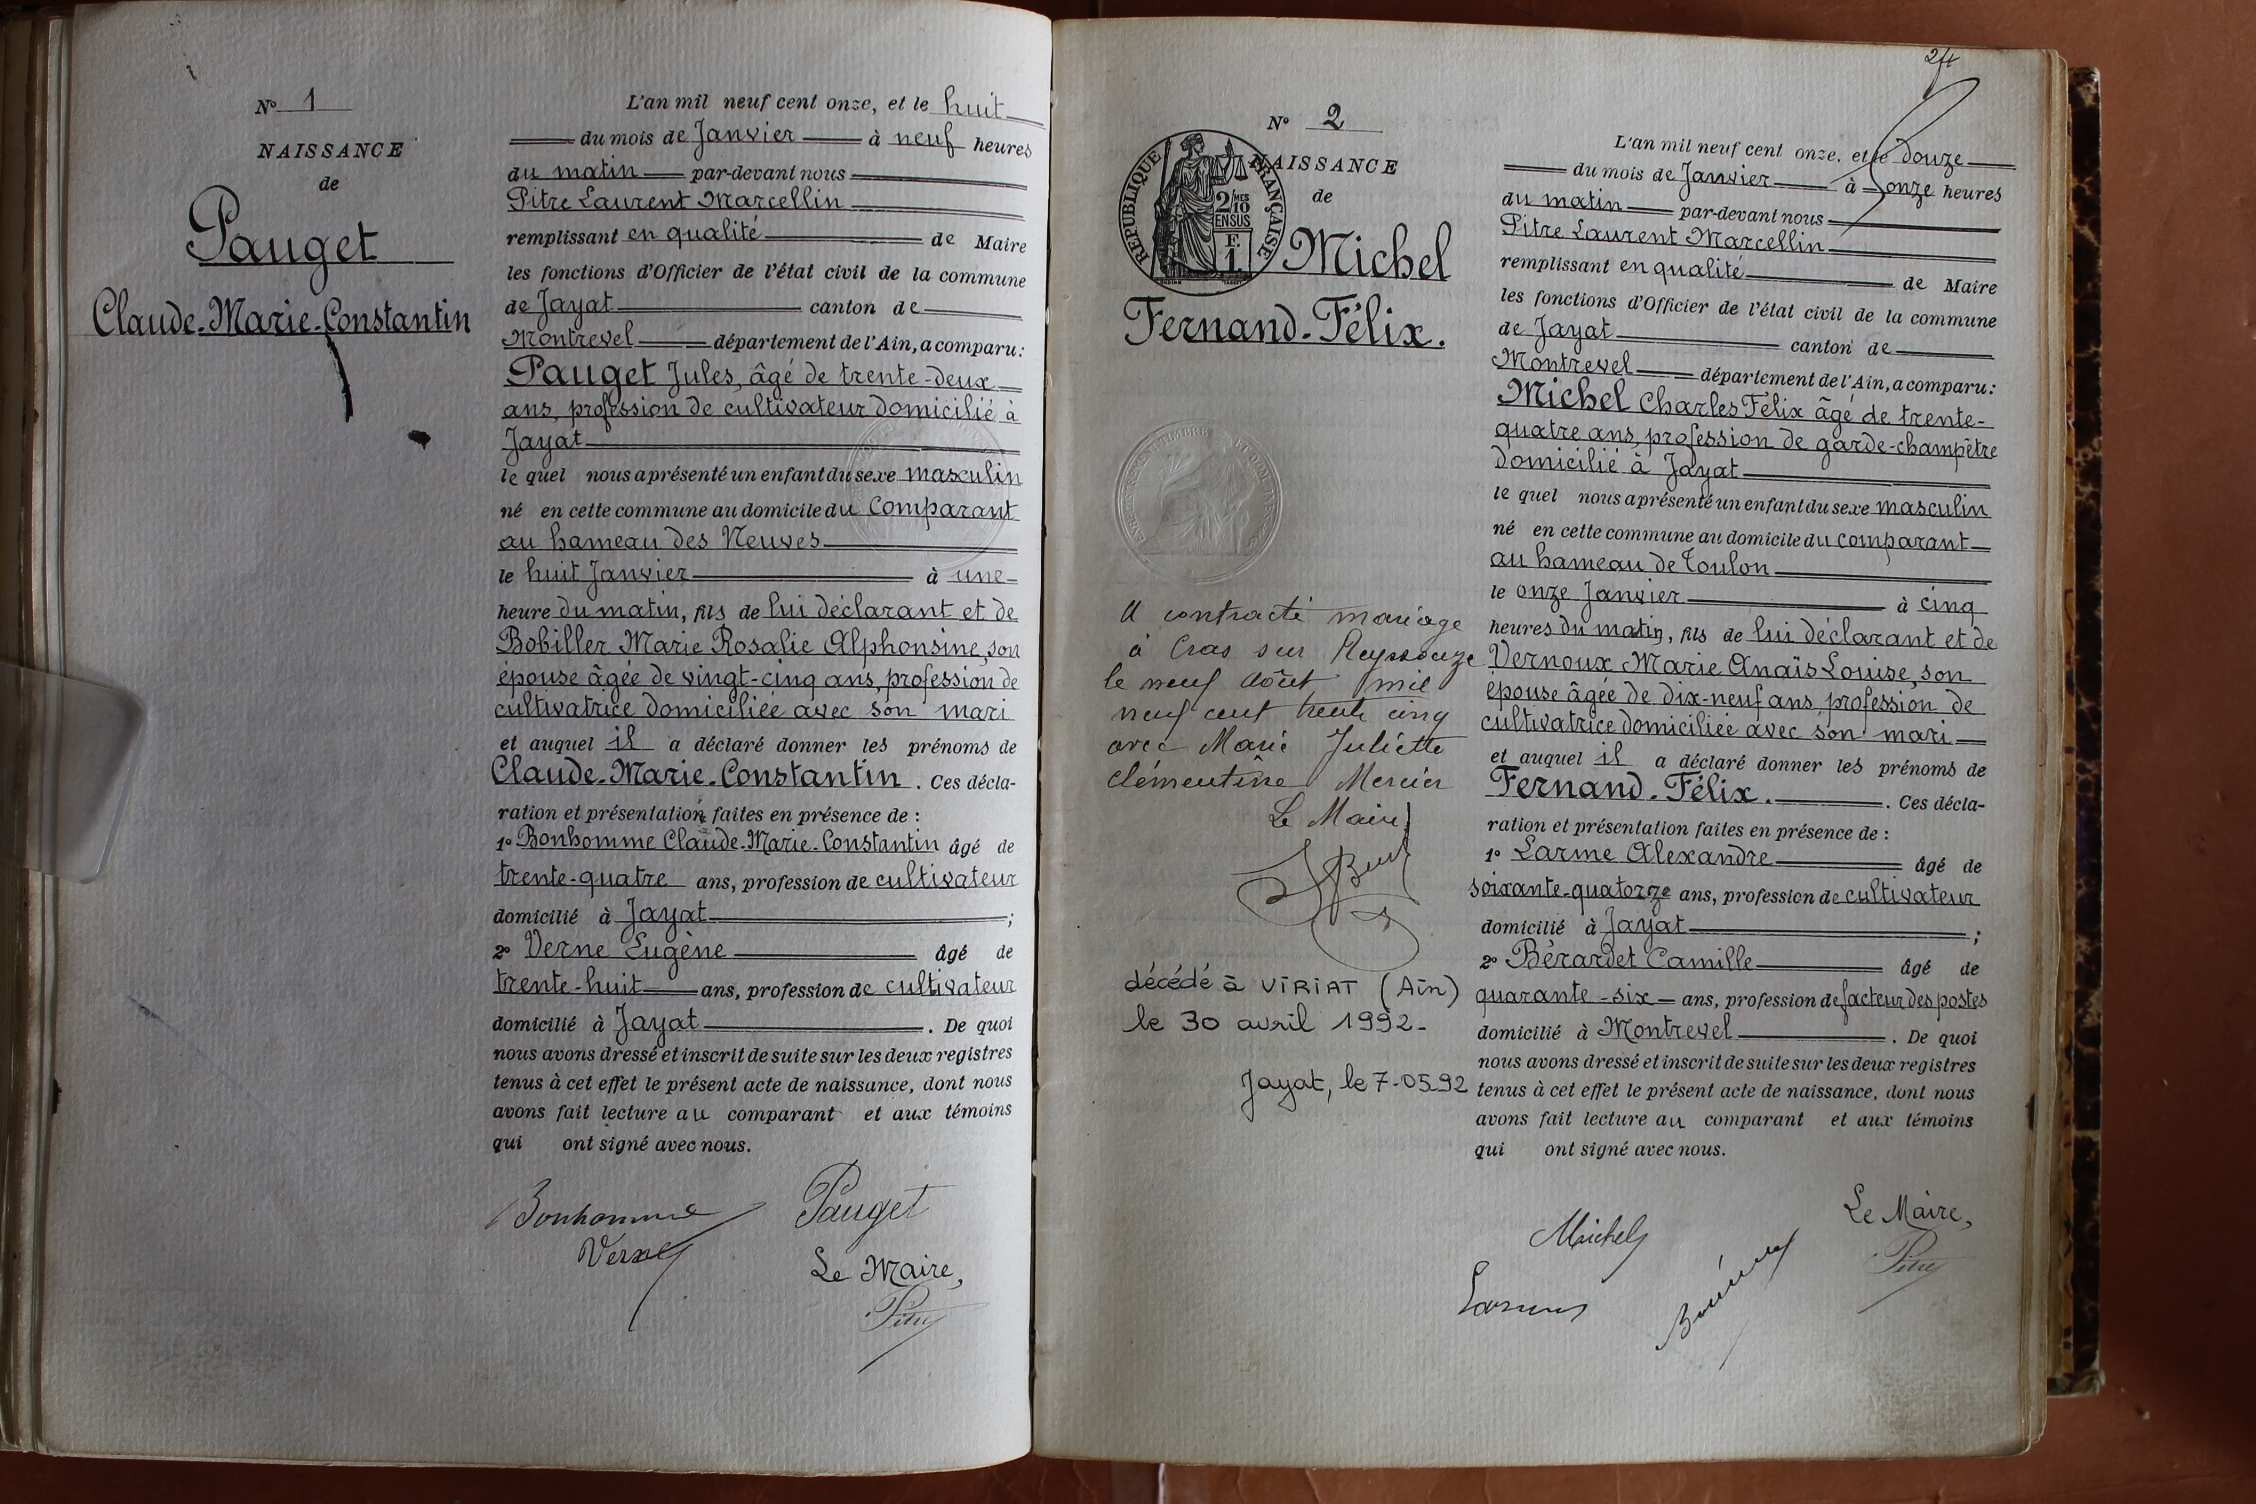 N° 1
NAISSANCE
de
Pauget
Claude-Marie-Constantin
L'an mil neuf cent onze, et le huit
du mois de Janvier à neuf heures
du matin par-devant nous
Pitre Laurent Marcellin
remplissant en qualité de Maire
les fonctions d'Officier de l'état civil de la commune
de Jayat canton de
Montrevel département de l'Ain, a comparu:
Pauget Jules, âgé de trente-deux
ans, profession de cultivateur domicilié à
Jayat
le quel nous a présenté un enfant du sexe masculin
né en cette commune au domicile du comparant
au hameau des Neuves
le huit Janvier à une
heure du matin, fils de lui déclarant et de
Bobiller Marie Rosalie Alphonsine, son
épouse âgée de vingt-cinq ans, profession de
cultivatrice domiciliée avec son mari
et auquel il a déclaré donner les prénoms de
Claude-Marie-Constantin. Ces décla-
ration et présentation faites en présence de :
1° Bonhomme Claude-Marie-Constantin âgé de
trente-quatre ans, profession de cultivateur
domicilié à Jayat ;
2° Verne Eugène âgé de
trente-huit ans, profession de cultivateur
domicilié à Jayat . De quoi
nous avons dressé et inscrit de suite sur les deux registres
tenus à cet effet le présent acte de naissance, dont nous
avons fait lecture au comparant et aux témoins
qui ont signé avec nous.
Bonhomme Pauget
Verne
Le Maire,
Pitre
24
N° 2
NAISSANCE
de
RÉPUBLIQUE FRANÇAISE
2/10MES
EN SUS
F.
1.
Michel
Fernand-Félix.
A contracté mariage
à Cras sur Reyssouze
le neuf août mil
neuf cent trente cinq
avec Marie Juliette
Clémentine Mercier
Le Maire
décédé à VIRIAT (Ain)
le 30 avril 1992.
Jayat, le 7-05-92
L'an mil neuf cent onze, et le douze
du mois de Janvier à onze heures
du matin par-devant nous
Pitre Laurent Marcellin
remplissant en qualité de Maire
les fonctions d'Officier de l'état civil de la commune
de Jayat canton de
Montrevel département de l'Ain, a comparu:
Michel Charles Félix âgé de trente-
quatre ans, profession de garde-champêtre
domicilié à Jayat
le quel nous a présenté un enfant du sexe masculin
né en cette commune au domicile du comparant
au hameau de Toulon
le onze Janvier à cinq
heures du matin, fils de lui déclarant et de
Vernoux Marie Anaïs Louise, son
épouse âgée de dix-neuf ans, profession de
cultivatrice domiciliée avec son mari
et auquel il a déclaré donner les prénoms de
Fernand-Félix. . Ces décla-
ration et présentation faites en présence de :
1° Larme Alexandre âgé de
soixante-quatorze ans, profession de cultivateur
domicilié à Jayat ;
2° Bérardet Camille âgé de
quarante-six ans, profession de facteur des postes
domicilié à Montrevel . De quoi
nous avons dressé et inscrit de suite sur les deux registres
tenus à cet effet le présent acte de naissance, dont nous
avons fait lecture au comparant et aux témoins
qui ont signé avec nous.
Le Maire,
Michel
Pitre
Larme